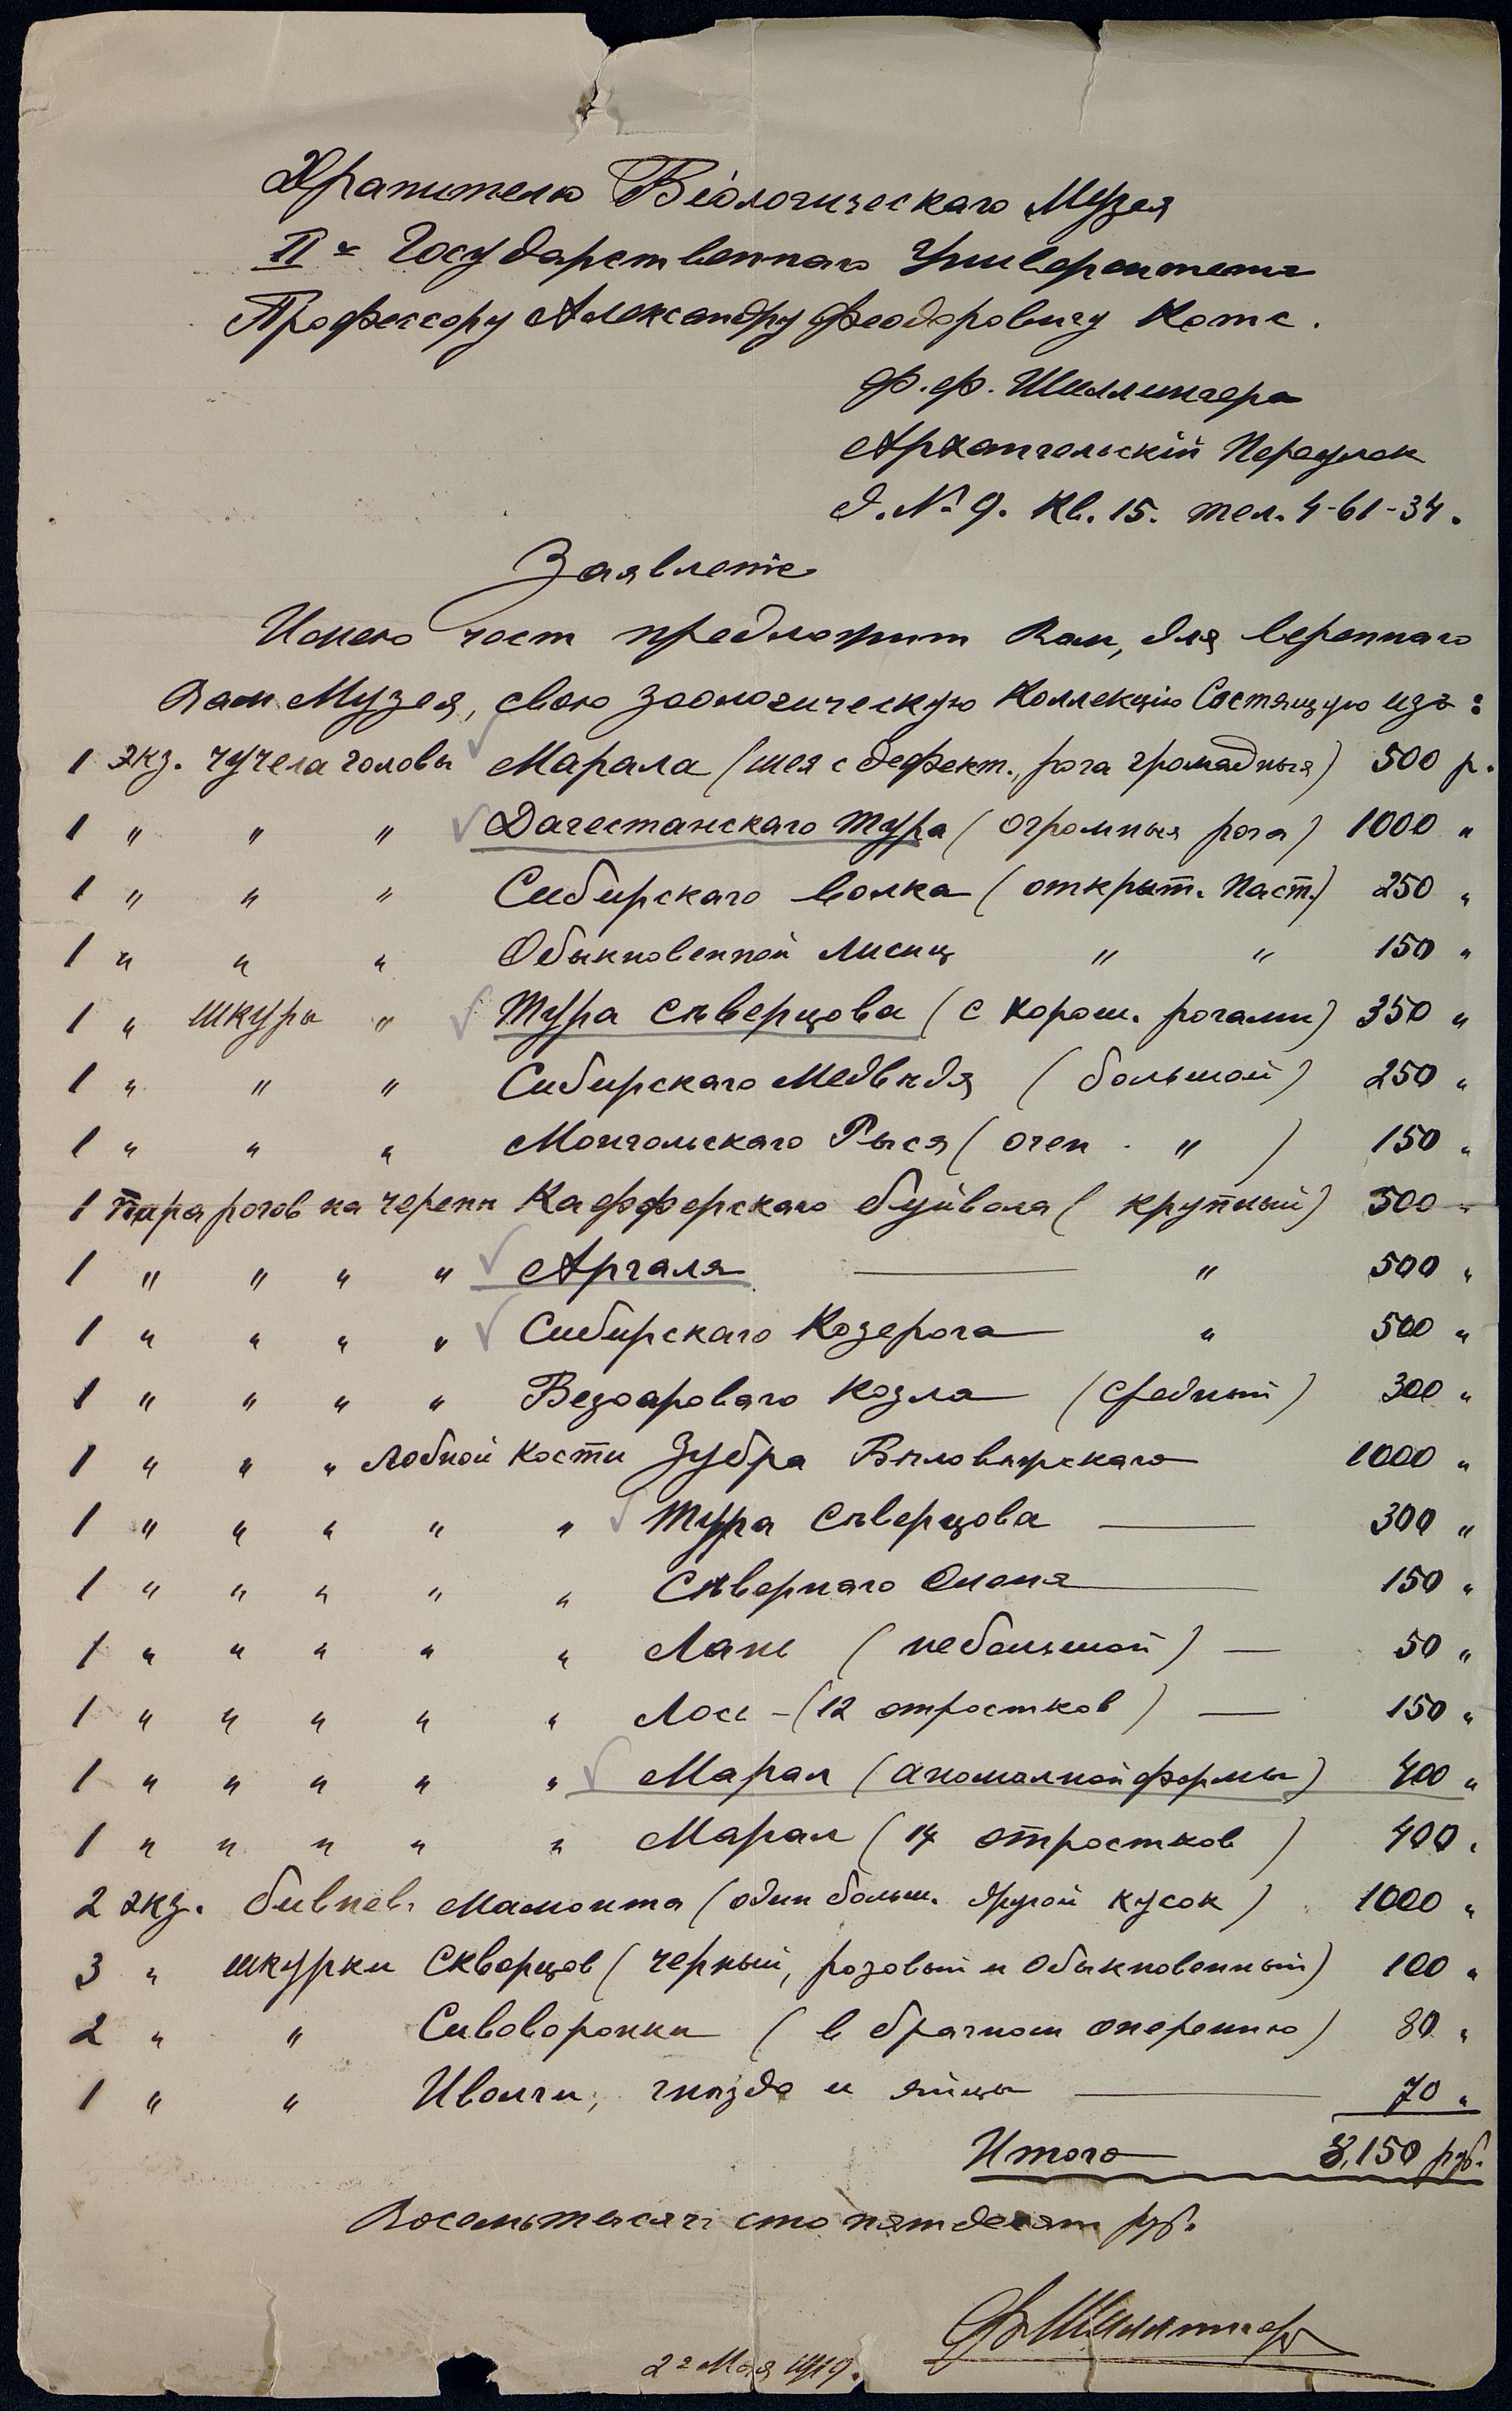 Хранителю Біологическаго Музея
II го Государственнаго Университета
Профессору Александру Феодоровичу Котс.
Ф. Ф. Шиллингера
Архангельскій Переулок
д. № 9. Кв. 15. тел. 4-61-34.
Заявленіе
Имею чест предложит Вам, для вереннаго
Вам Музея, свою зоологическую Коллекцію Состящую изъ:
1 экз. чучела головы Марала (шея с дефект., рога громадныя) 500 р.
1 " " " Дагестанскаго тура (огромныя рога) 1000 "
1 " " " Сибирскаго волка (открыт. паст.) 250 "
1 " " " Обыкновенной Лисиц " " 150 "
1 " шкуры " Тура Сѣверцова (с хорош. рогами) 350 "
1 " " " Сибирскаго Медвѣдя (большой) 250 "
1 " " " Монгольскаго Рыся (очен. ") 150 "
1 Пара рогов на черепѣ Кафферскаго буйвола (крупный) 500 "
1 " " " " Аргаля — " 500 "
1 " " " " Сибирскаго Козерога " 500 "
1 " " " " Безоароваго Козла (средный) 300 "
1 " " " Лобной Кости Зубра Бѣловѣжскаго 1000 "
1 " " " " " Тура Сѣверцова — 300 "
1 " " " " " Сѣвернаго Оленя — 150 "
1 " " " " " Лань (небольшой) — 50 "
1 " " " " " Лось - (12 отростков) — 150 "
1 " " " " " Марал (аномалной формы) 400 "
1 " " " " " Марал (14 отростков) 400 "
2 экз. бивнев Мамонта (один больш. другой кусок) 1000 "
3 " шкурки Скворцов (черный, розовый и Обыкновенный) 100 "
2 " " Сивоворонки (в брачном оперению) 80 "
1 " " Иволги, гнѣзда и яйцы — 70 "
Итого 8,150 руб.
Восемьтысяч сто пятдесят руб.
Ф. Шиллингер
2 го Мая 1919.